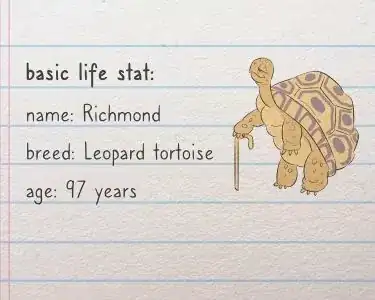 basic life stat:
name: Richmond
breed: Leopard tortoise
age: 97 years